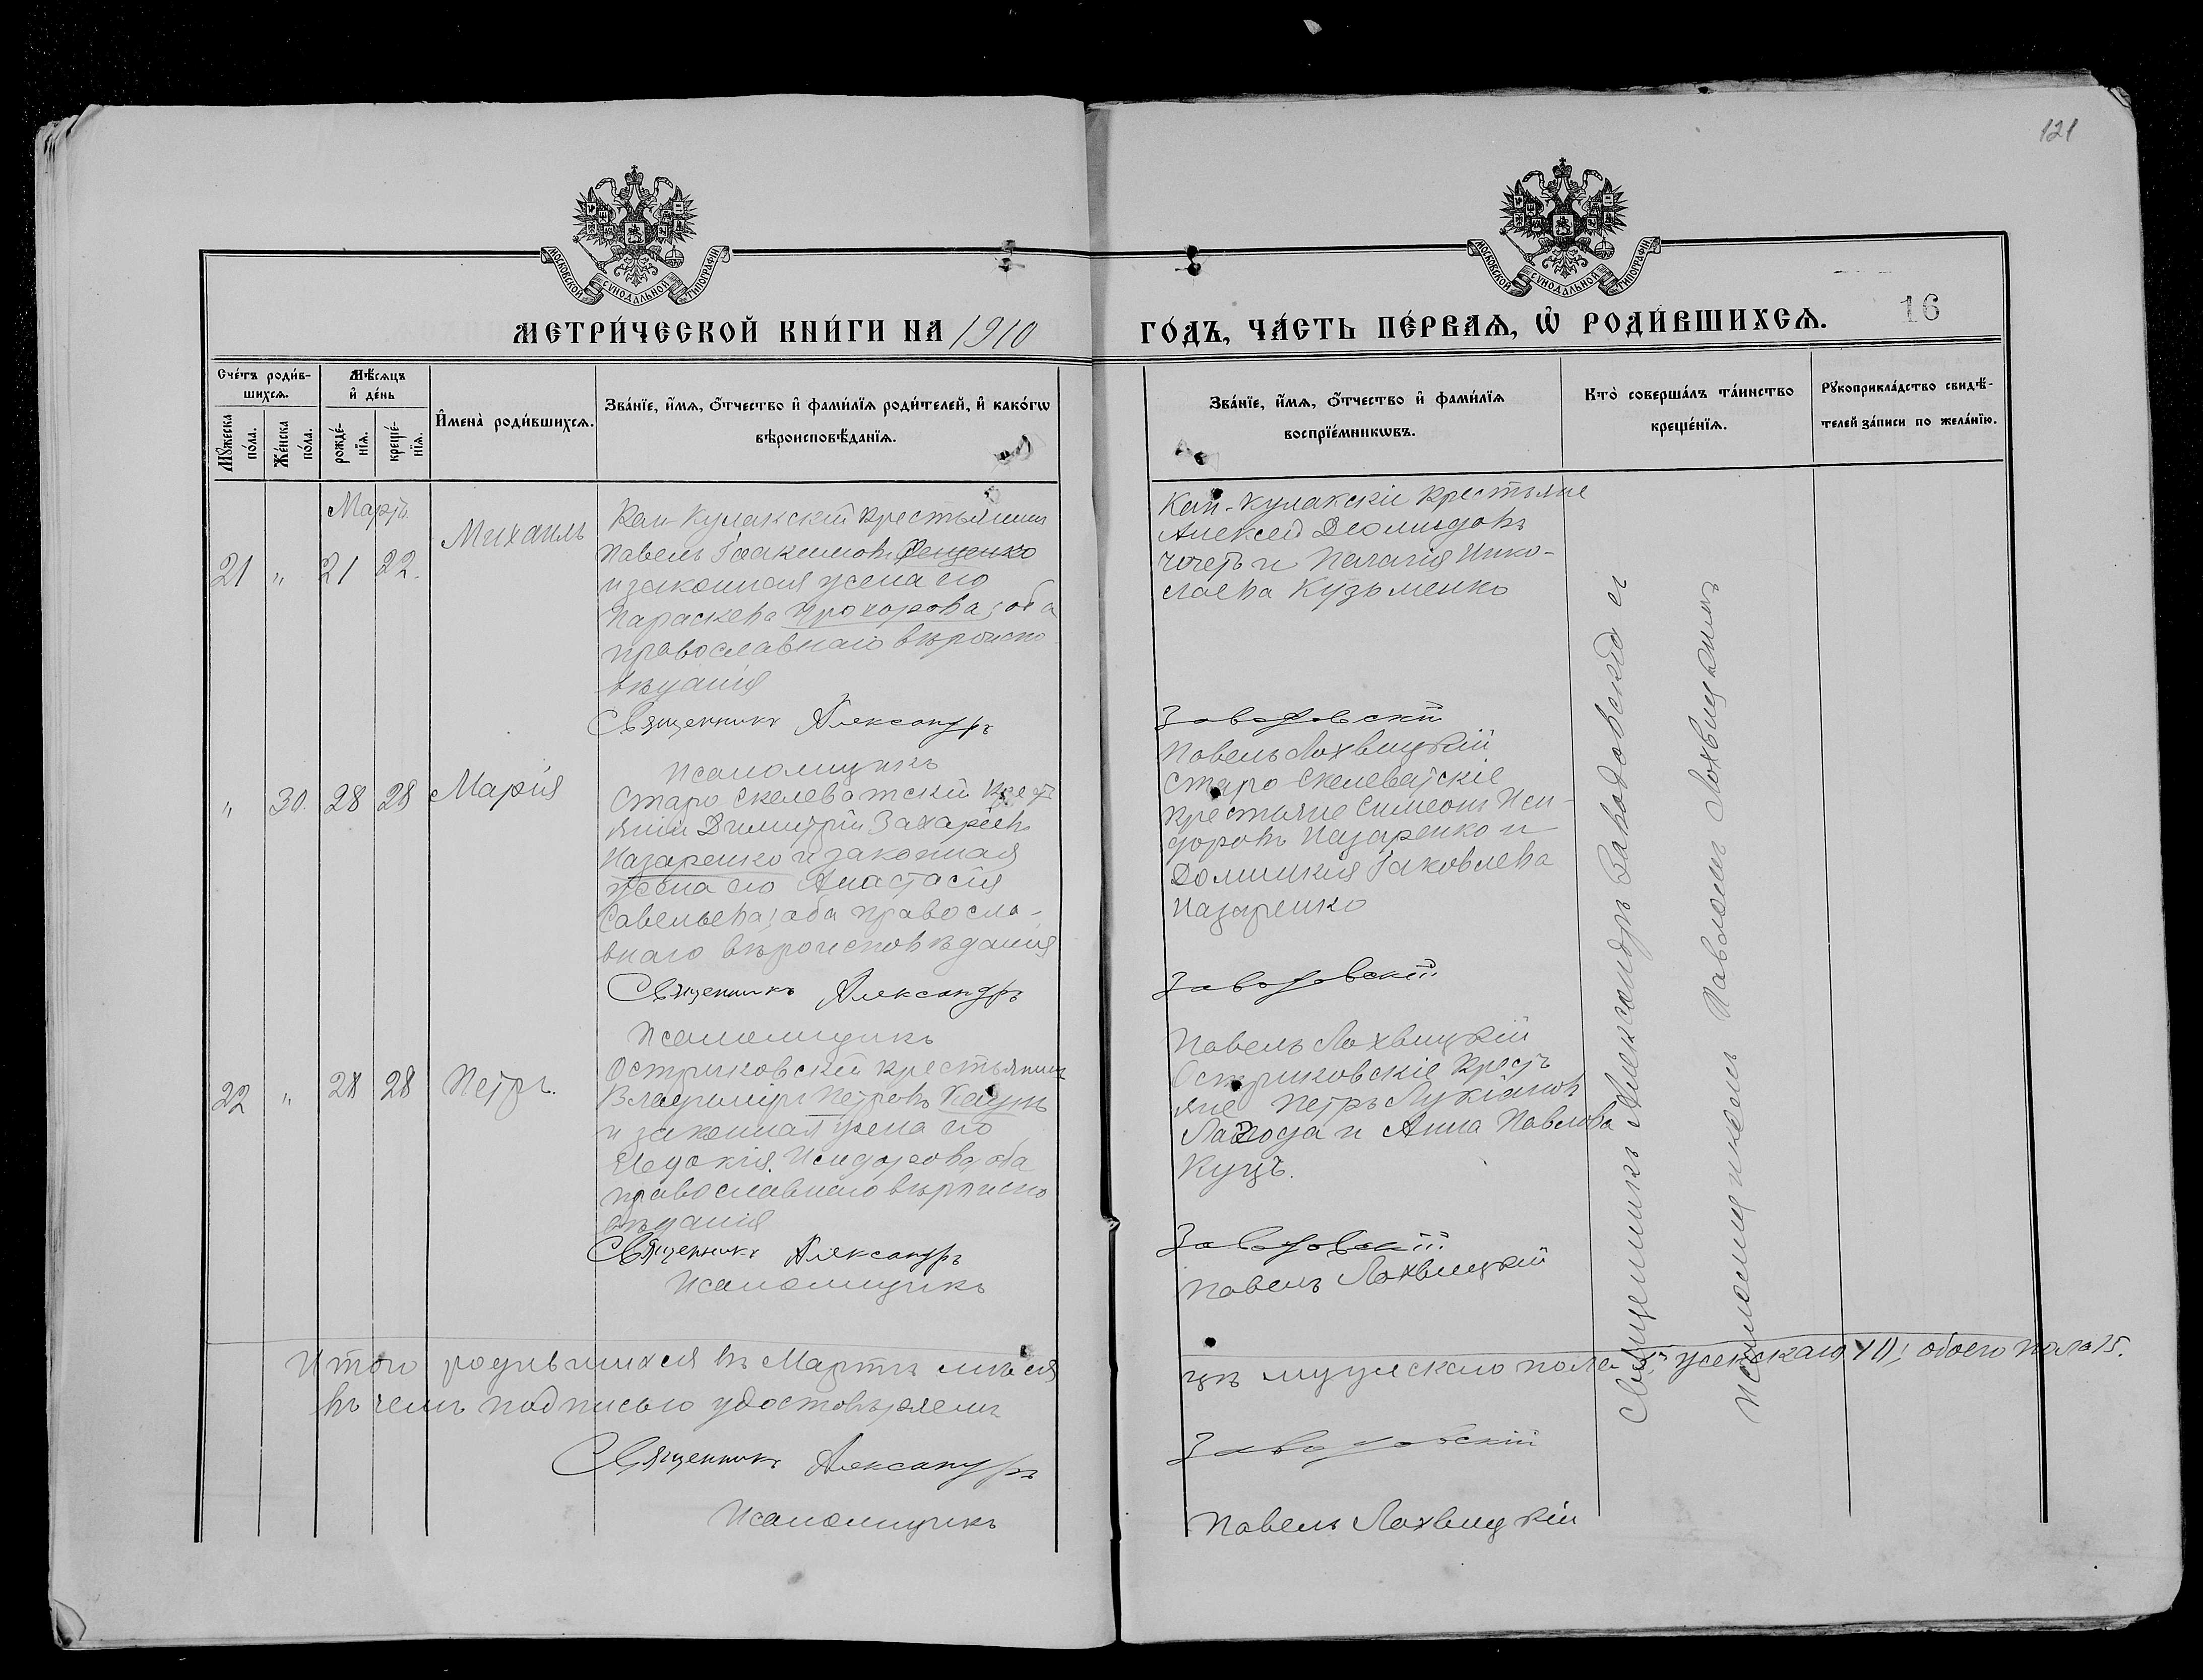 121
МОСКОВСКОЙ СѴНОДАЛЬНОЙ ТИПОГРАФІИ
МОСКОВСКОЙ СѴНОДАЛЬНОЙ ТИПОГРАФІИ
16
МЕТРИ́ЧЕСКОЙ КНИ́ГИ НА 1910
ГО́ДЪ, ЧА́СТЬ ПЕ́РВАѦ, Ѡ҆ РОДИ́ВШИХСѦ.
Сче́тъ роди́в-
шихсѧ.
Мꙋ́жеска по́ла.
Же́нска по́ла.
Мѣ́сѧцъ и҆ де́нь
рожде́-нїѧ.
креще́-нїѧ.
И҆мена̀ роди́вшихсѧ.
Зва́нїе, и҆́мѧ, ѻ҆́тчество и҆ фами́лїѧ роди́телей, и҆ како́гѡ
вѣроисповѣ́данїѧ.
Зва́нїе, и҆́мѧ, ѻ҆́тчество и҆ фами́лїѧ
воспрїе́мникѡвъ.
Кто̀ соверша́лъ та́инство
креще́нїѧ.
Рꙋкоприкла́дство свидѣ́-
телей за́писи по жела́нїю.
Мартъ.
21 " 21 22.
Михаилъ
Кам-Кулакскій крестьянинъ
Павелъ Іоакимовъ Фещенко
и законная жена его
Параскева Прохорова; оба
православнаго вѣроиспо
вѣданія
Священникъ Александръ
Псаломщикъ
Кам-Кулакскіе крестьяне
Алексей Диомидовъ
Чочетъ и Пелагія Нико-
лаева Кузьменко
Заводовскій
Павелъ Лохвицкій
" 30. 28 28
Марія
Старо Скелеватскій крест
янин Димитрій Захаріевъ
Назаренко и законная
жена его Анастасія
Савельева; оба правосла-
внаго вѣроисповѣданія
Священникъ Александръ
Псаломщикъ
Старо Скелеватскіе
крестьяне Симеонъ Иси-
доровъ Назаренко и
Домникия Іаковлева
Назаренко
Заводовскій
Павелъ Лохвицкій
22 " 28 28
Петръ.
Остриковскій крестьянинъ
Владиміръ Петровъ Кацуъ
и законная жена его
Евдокія Исидорова, оба
православнаго вѣроиспо
вѣданія
Священникъ Александръ
Псаломщикъ
Остриковскіе крест
яне Петръ Лукіановъ
и Анна Павлова
Куцъ.
Заводовскій
Павелъ Лохвицкій
Священникъ Александръ Заводовскій съ
Псаломщикомъ Павломъ Лохвицкимъ
Итого родившихся въ Мартѣ мѣся
цѣ мужескаго пола женскаго обоего пола 15.
въ чемъ подписью удостовѣряемъ
Священникъ Александръ
Заводовскій
Псаломщикъ
Павелъ Лохвицкій